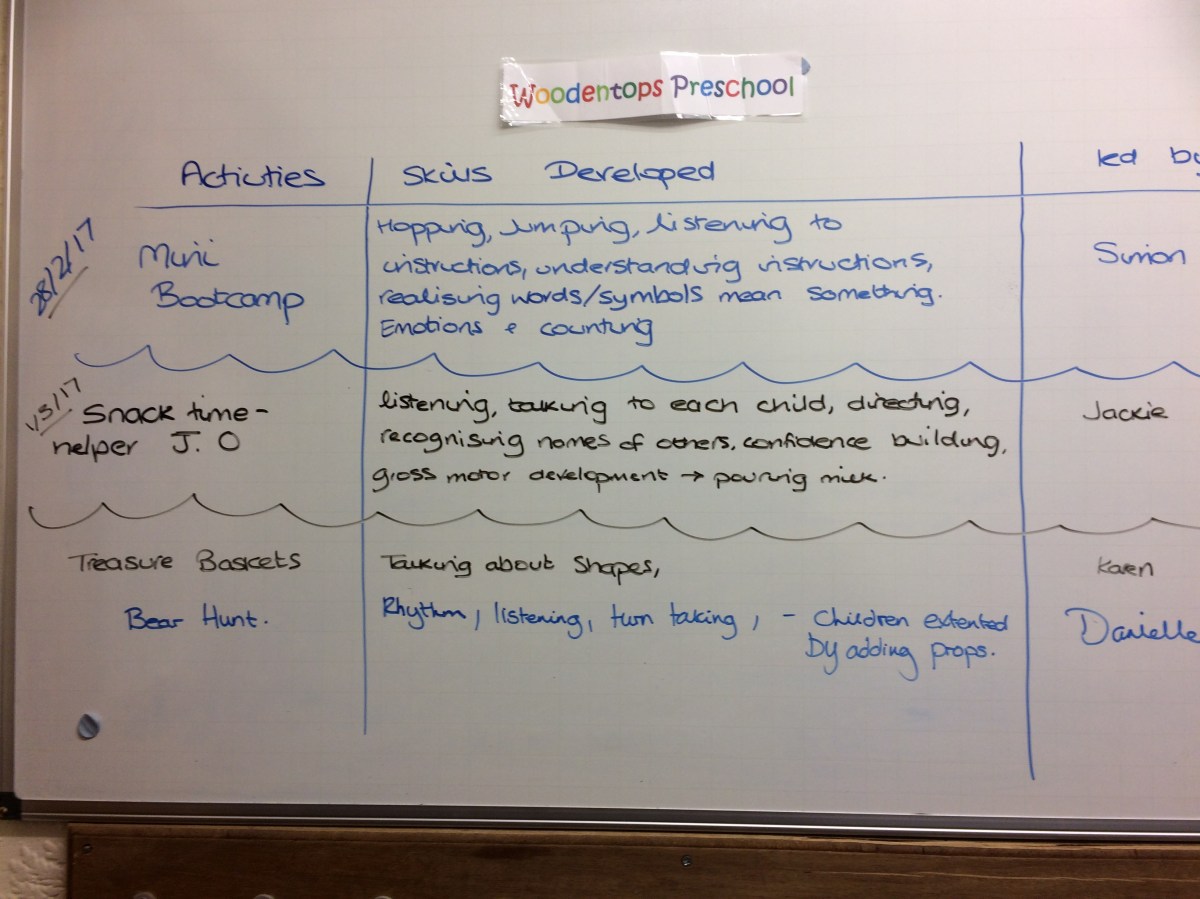 Woodentops Preschool
Activities Skills Developed led by
28/2/17
Mini
Bootcamp
Hopping, Jumping, listening to
instructions, understanding instructions,
realising words/symbols mean something.
Emotions & counting
Simon
1/3/17
Snack time -
helper J. O
listening, talking to each child, directing,
recognising names of others, confidence building,
gross motor development → pouring milk.
Jackie
Treasure Baskets Talking about shapes, Karen
Bear Hunt. Rhythm, listening, turn taking, - Children extented
by adding props.
Danielle